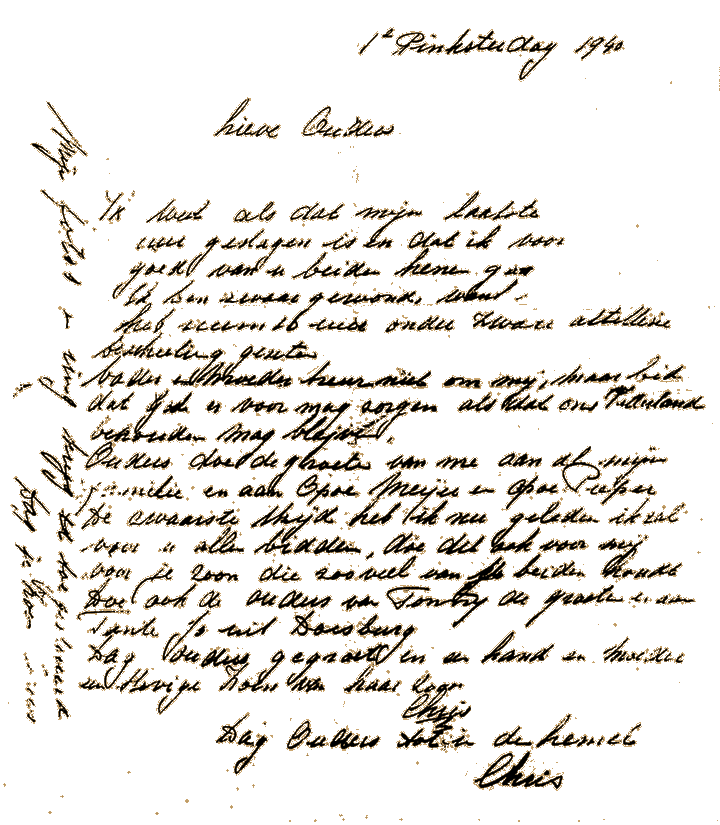 1e Pinksterdag 1940
Lieve Ouders
Ik weet als dat mijn laatste
uur geslagen is en dat ik voor
goed van u beiden henen ga
Ik ben zwaar gewond, want
heb uur onder zware artellerie
beschieting gezeten
Vader en Moeder treur niet om mij, maar bid
dat God u voor mag zorgen als dat ons Nederland
behouden mag blijve.
Ouders doe de groeten van me aan al mijn
familie en aan Opoe Meijer en Opoe Pieper
De zwaarste strijd heb ik nu geleden ik zal
voor u allen bidden, doe dit ook voor mij
voor je zoon die zooveel van je beiden houdt
Doe ook de ouders van Tonny de groeten en aan
Tante Jo uit Doesburg
Dag ouders gegroet en een hand en moeder
een stevige zoen van haar zoon
Chris
Dag Ouders tot in de hemel
Chris
Mijn fotos en ring krijg
Dag je zoon